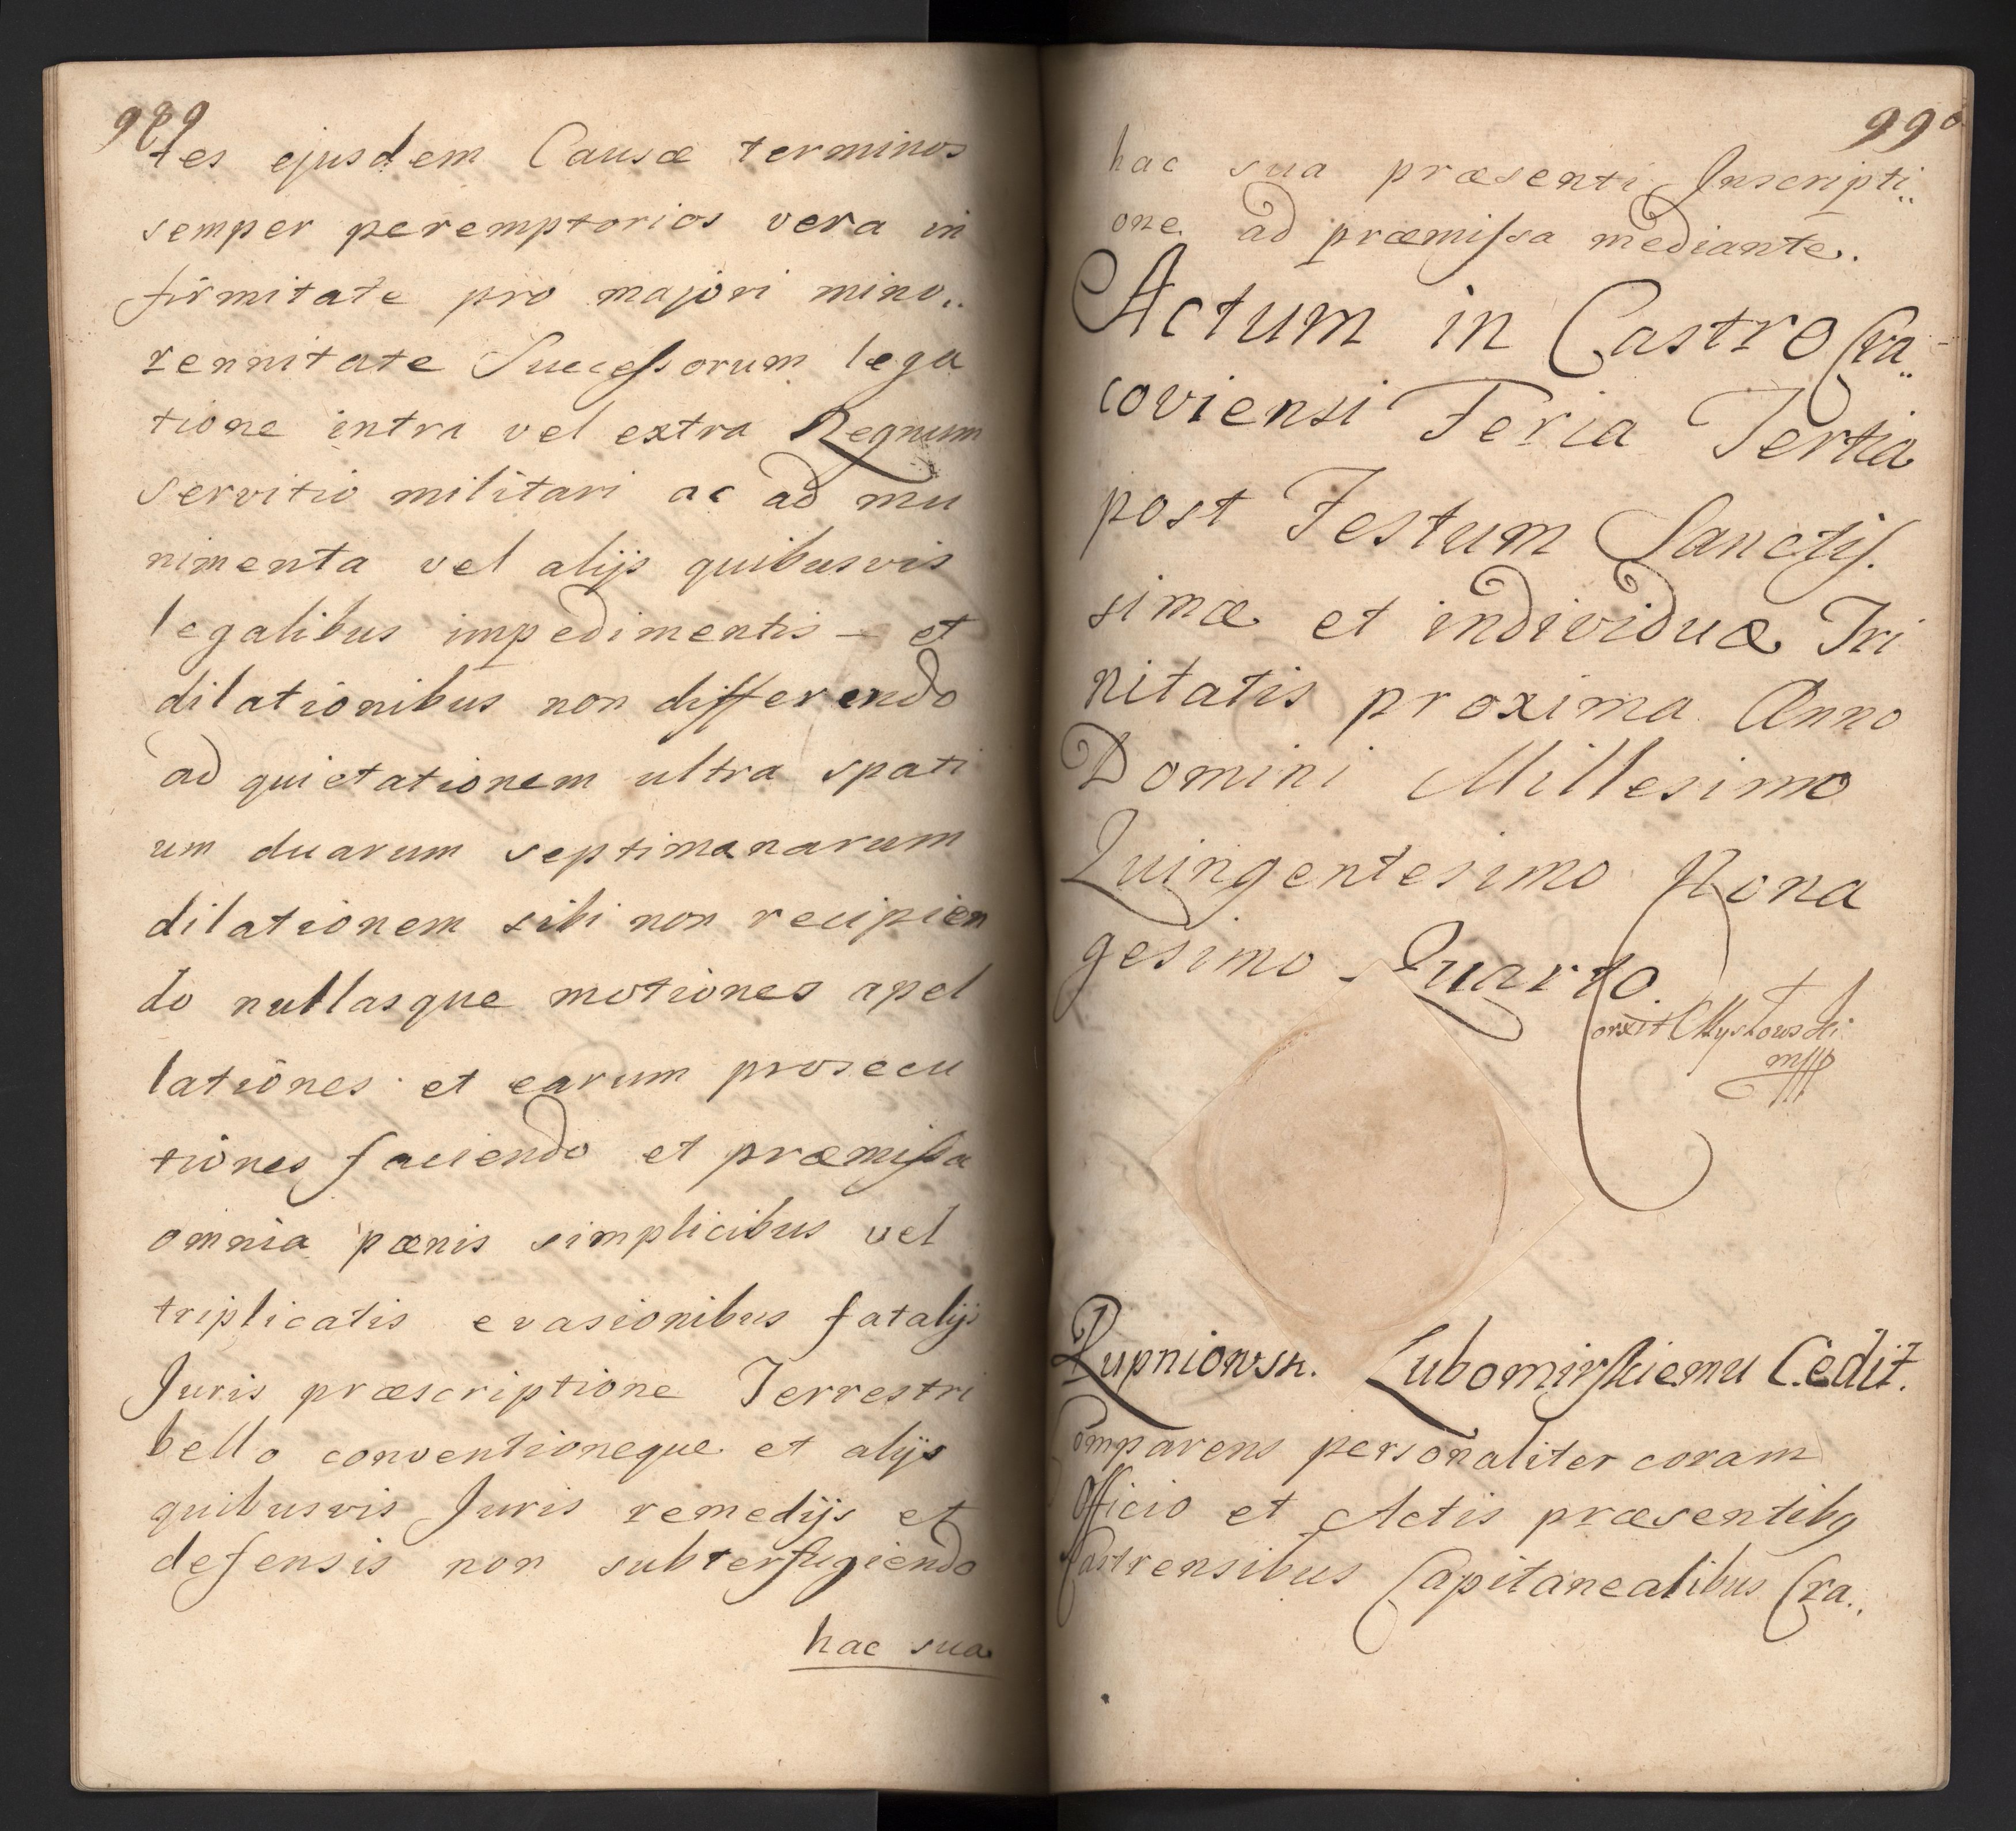 989
tes ejusdem Causæ terminos
semper peremptorios vera in
firmitate pro majori mino,,
rennitate Successorum lega
tione intra vel extra Regnum
servitio militari ac ad mu
nimenta vel alijs quibusvis
legalibus impedimentis – et
dilationibus non differendo
ad quietationem ultra spati
um duarum septimanarum
dilationem sibi non recipien
do nullasque motiones apel
lationes et earum prosecu
tiones faciendo et præmissa
omnia pænis simplicibus vel
triplicatis evasionibus fatalijs
Juris præscriptione Terrestri
bello conventioneque et alijs
quibusvis Juris remedijs et
defensis non subterfugiendo
hac sua
990
hac sua præsenti Inscripti,,
one ad præmissa mediante.
Actum in Castro Cra,,
coviensi Feria Tertia
post Festum Sanctis.
simæ et individuæ Tri
nitatis proxima Anno
Domini Millesimo
Quingentesimo Nona
gesimo Quarto.
mpp
Łupniowsk. Lubomirskiemu Cedit.
Comparens personaliter coram
Officio et Actis præsentibq
Castrensibus Capitanealibus Cra.,